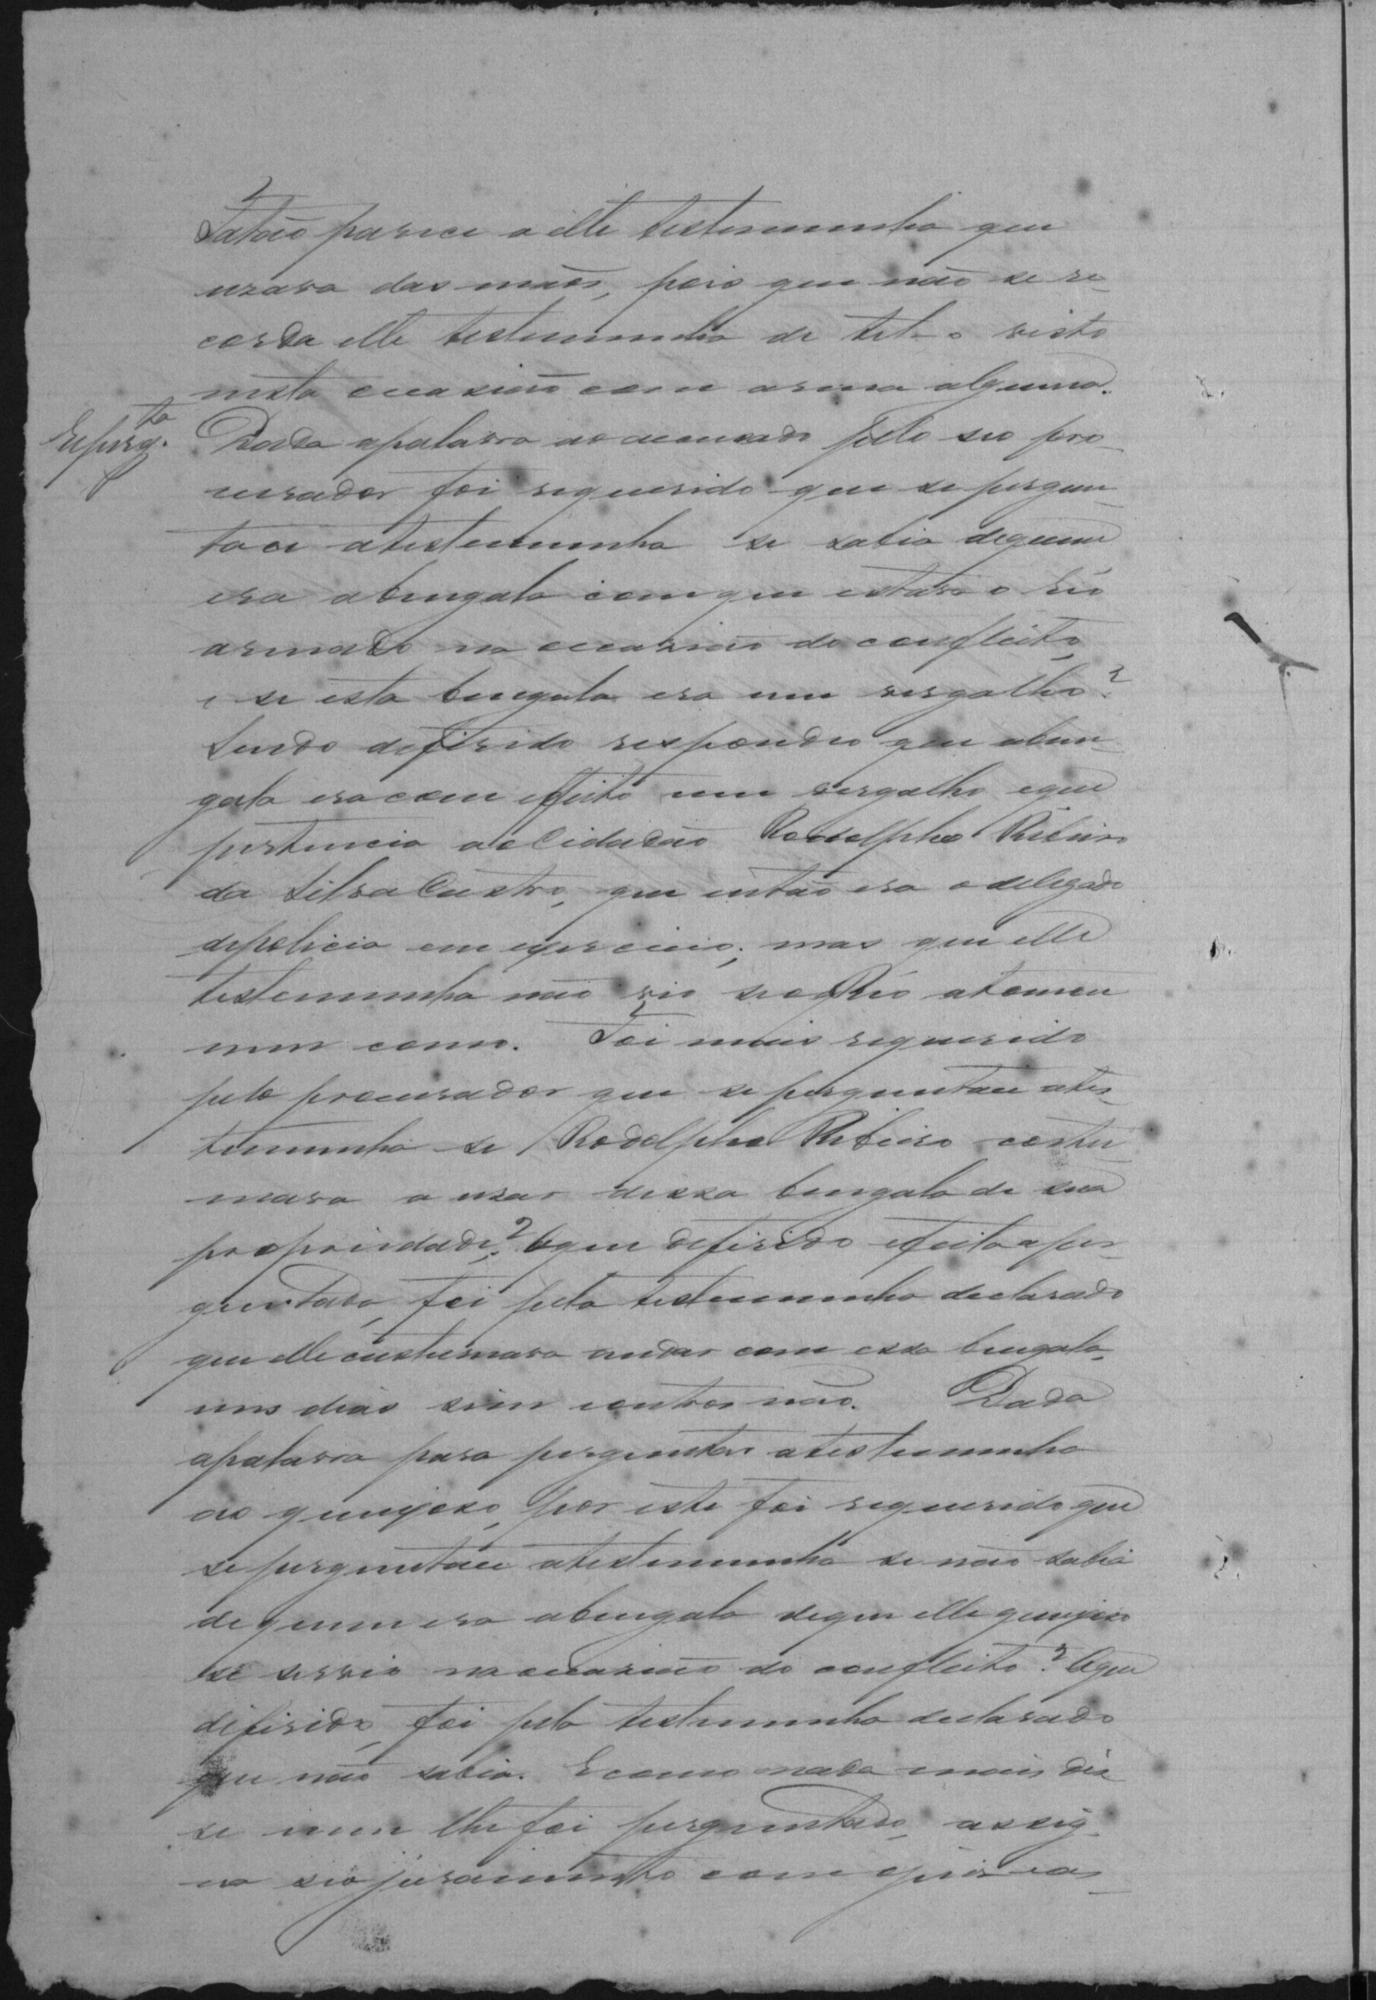 Falcão parece a elle testemunha que
usava das mãos, pois que não se re-
corda elle testemunha de tel-o visto
nesta occasião com arma alguma.
Dada apalavra ao accusado pelo seo pro-
curador foi requerido que se pergun-
tace atestemunha se sabia dequem
era abengala comque estava o réo
armado na occasião do conflicto,
e se esta bengala era um vergalho?
Sendo deferido respondeo que aben-
gala era com effeito um vergalho eque
pertencia ao Cidadão Rodolpho Ribeiro
da Silva Castro, que então era o delegado
depolicia em exercicio; mas que elle
testemunha não vio seo Réo atomou
nem como. Foi mais requerido
pelo procurador que se perguntace ates-
temunha se Rodolpho Ribeiro costu-
mava a usar dessa bengala de sua
propriedade? Oque deferido efeita aper-
guntada, foi pela testemunha declarado
que elle custumava andar com essa bengala,
uns dias sim eoutros não. Dada
apalavra para perguntar atestemunha
ao queixoso, por este foi requerido que
se perguntace atestemunha se não sabia
de quem era abengala deque elle queixoso
se servio na occasião do conflicto? Oque
deferido, foi pela testemunha declarado
que não sabia. E como nada mais dis
se nem lhe foi perguntado, assig-
na seo juramento com